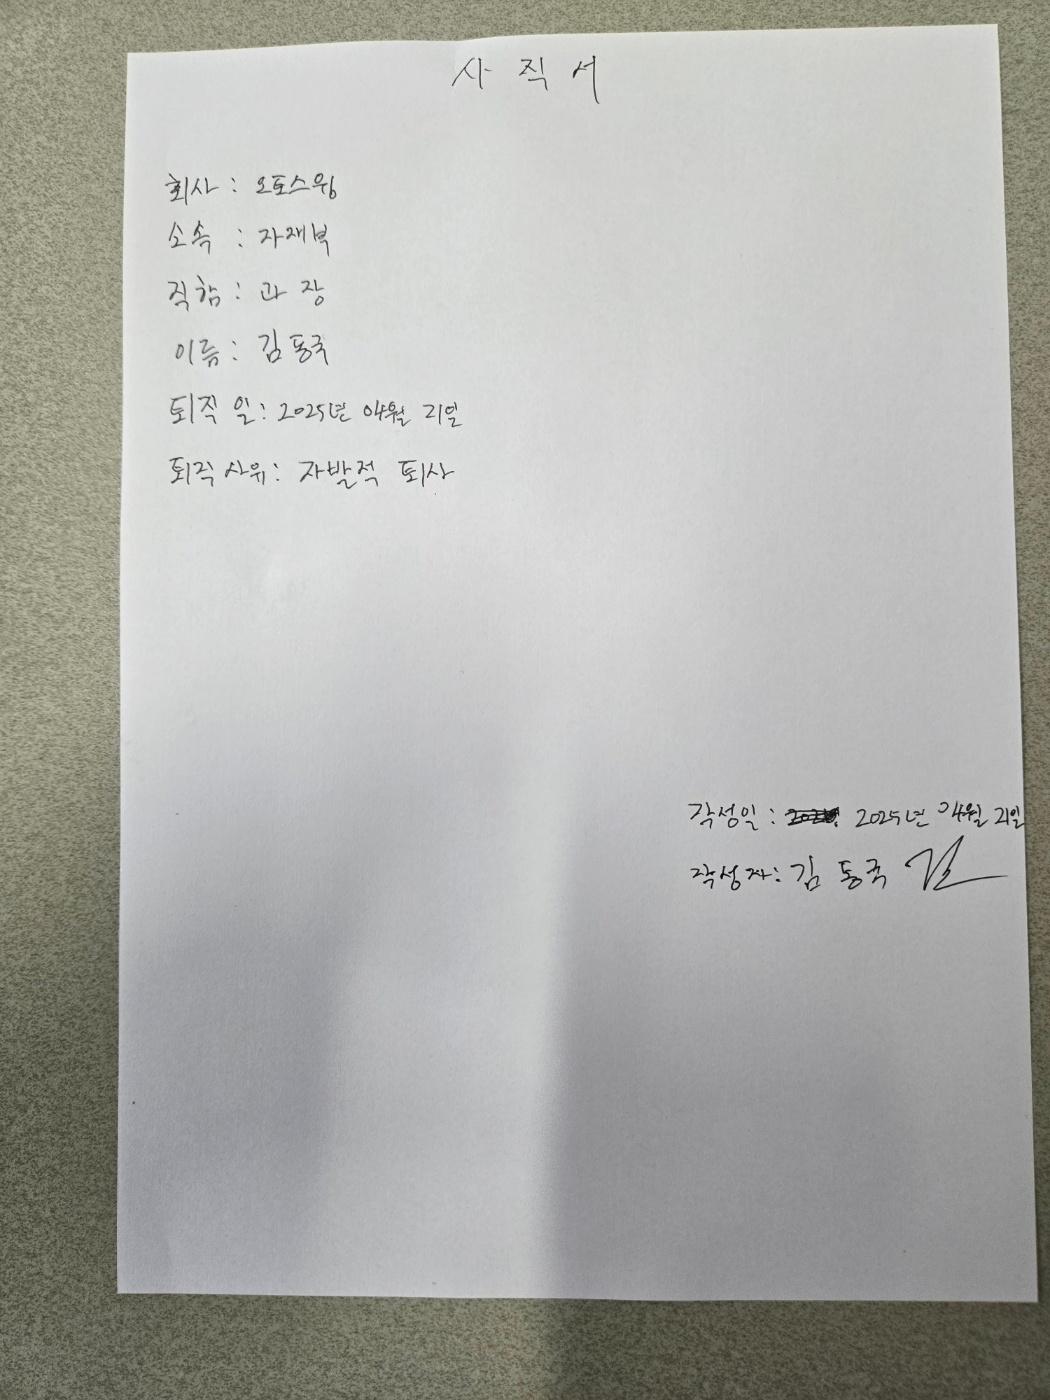 사 직 서
회사 : 오토스윙
소속 : 자재부
직함 : 과 장
이름 : 김동국
퇴직 일 : 2025년 04월 21일
퇴직 사유 : 자발적 퇴사
작성일 : 2025년 04월 21일
작성자 : 김 동 국